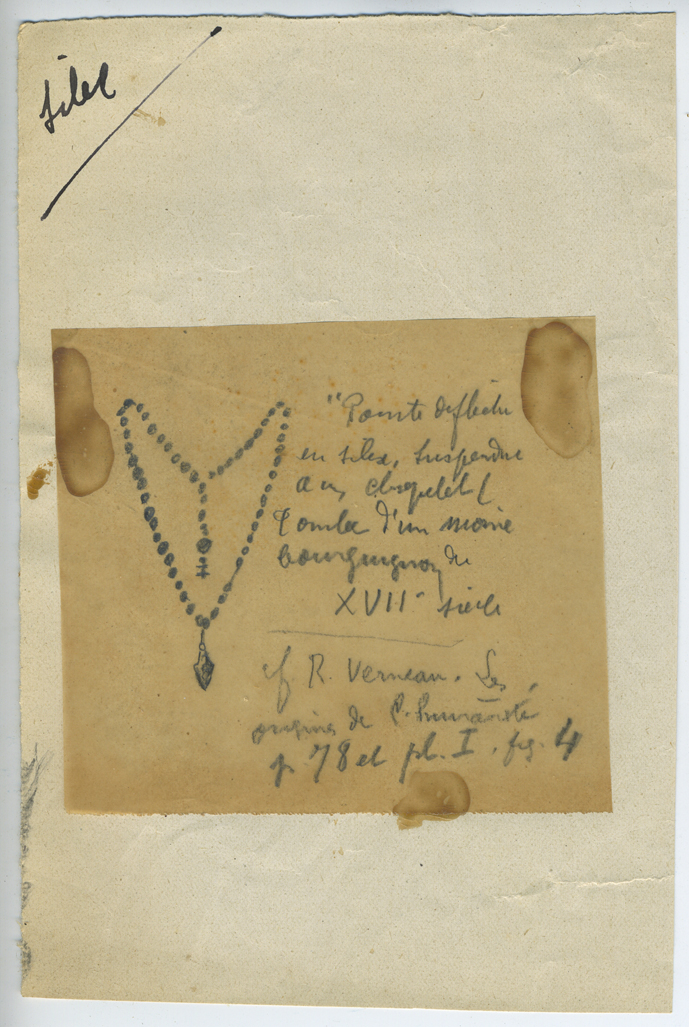 silex
"Pointe de flèche
en silex, suspendue
à un chapelet (
Tombe d'un moine
bourguignon du
XVIIe siècle
cf R. Verneau. Les
origines de l'humanité
p 78 et pl. I. fig. 4